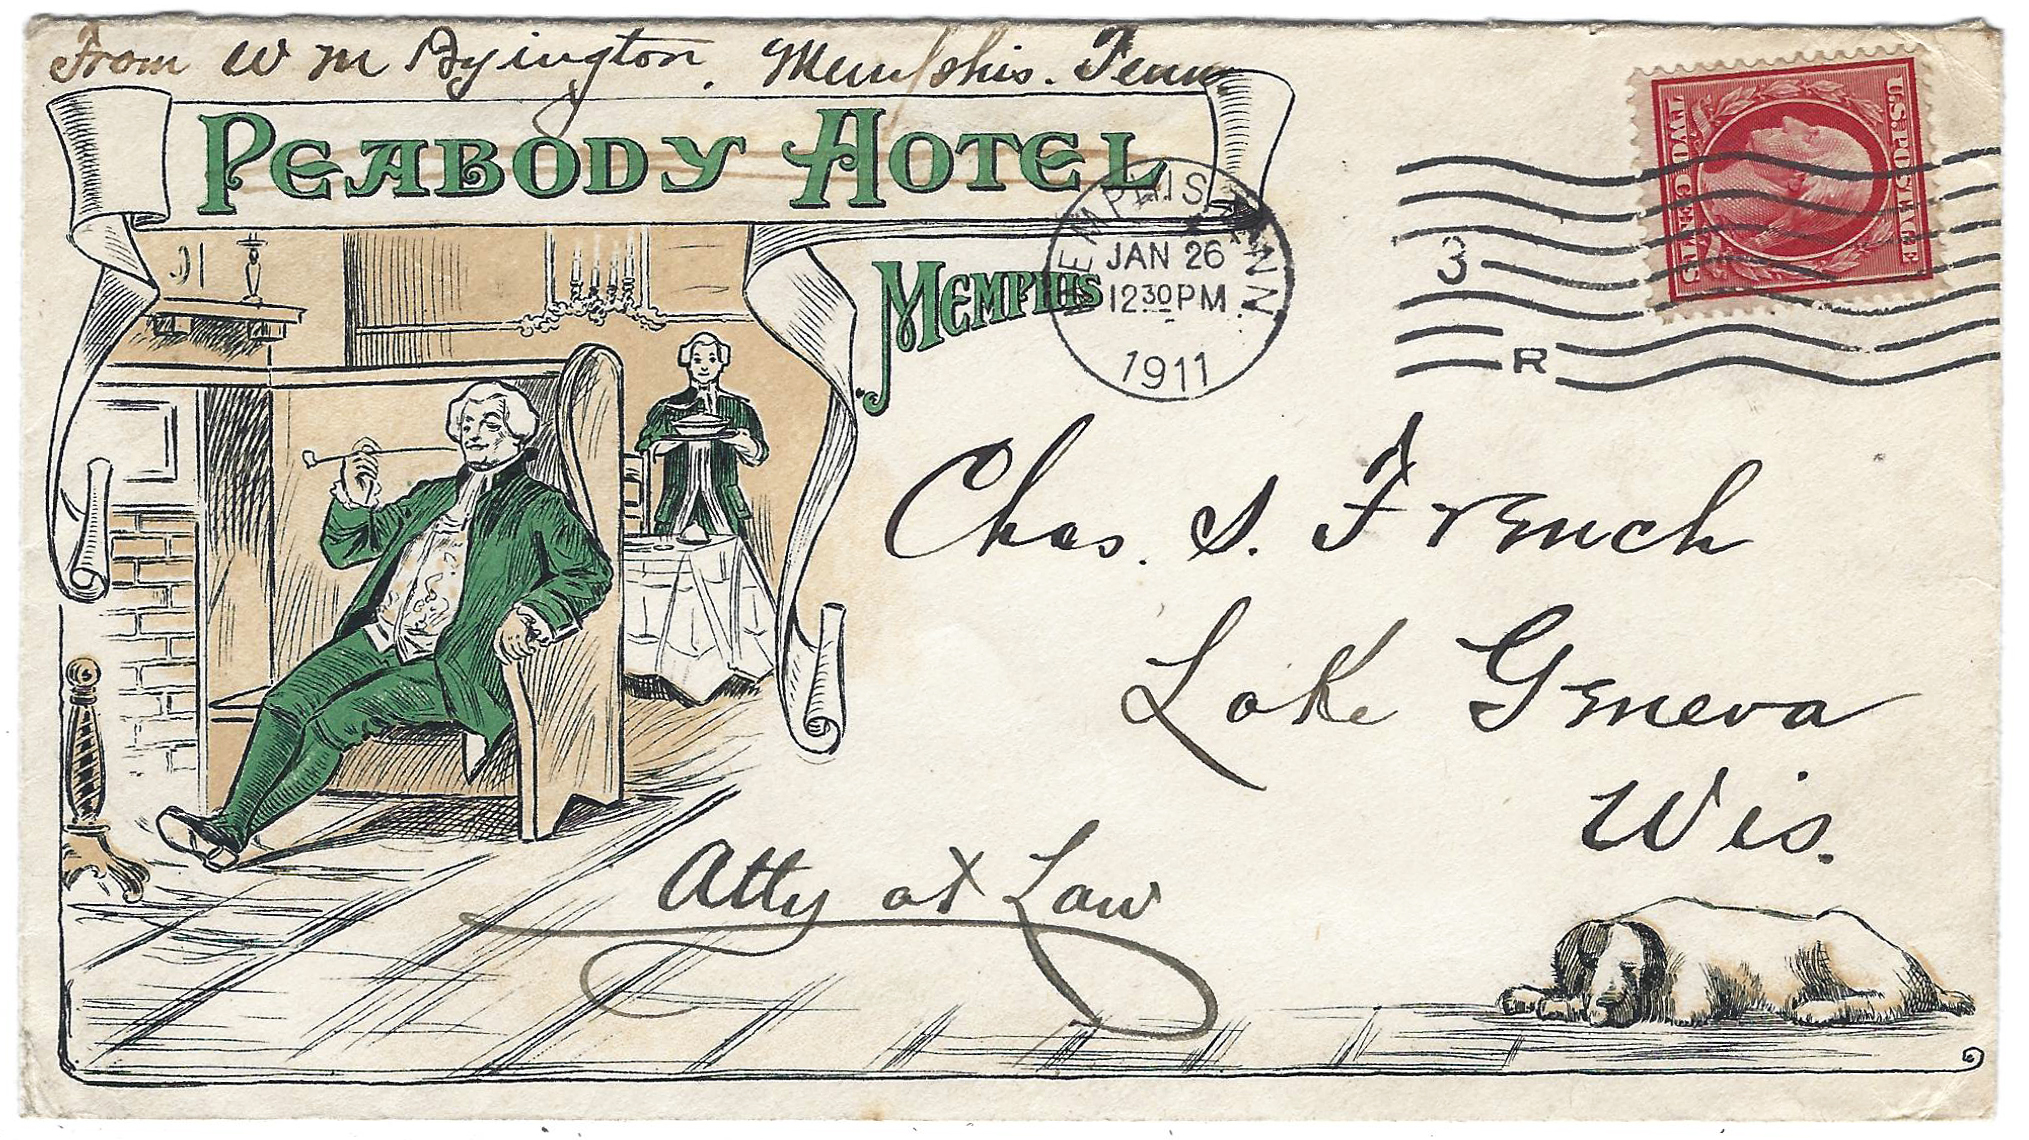 From W M Byington, Memphis. Tenn
PEABODY HOTEL
MEMPHIS
MEMPHIS, TENN.
JAN 26
12 30 PM
1911
3
R
U.S. POSTAGE
TWO CENTS
Chas. S. French
Lake Geneva
Wis.
Atty at Law